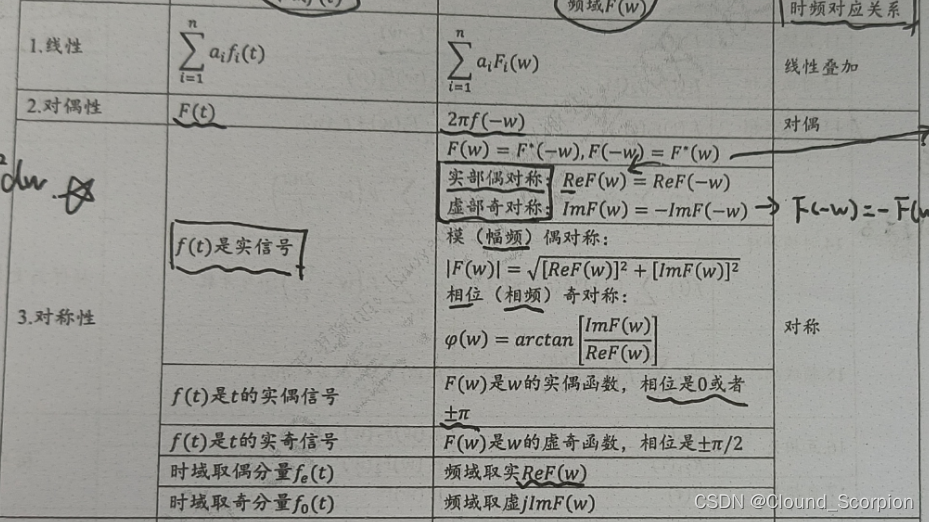 频域F(w)
时频对应关系
1.线性
n
∑ aᵢfᵢ(t)
i=1
n
∑ aᵢFᵢ(w)
i=1
线性叠加
2.对偶性
F(t)
2πf(-w)
对偶
3.对称性
f(t)是实信号
F(w) = F*(-w), F(-w) = F*(w)
实部偶对称: ReF(w) = ReF(-w)
虚部奇对称: ImF(w) = -ImF(-w)
→ F(-w)=-F(w
模（幅频）偶对称:
|F(w)| = √[ReF(w)]² + [ImF(w)]²
相位（相频）奇对称:
φ(w) = arctan [ImF(w)/ReF(w)]
对称
f(t)是t的实偶信号
F(w)是w的实偶函数，相位是0或者
±π
f(t)是t的实奇信号
F(w)是w的虚奇函数，相位是±π/2
时域取偶分量fₑ(t)
频域取实ReF(w)
时域取奇分量f₀(t)
频域取虚jImF(w)
² dw
CSDN @Clound_Scorpion